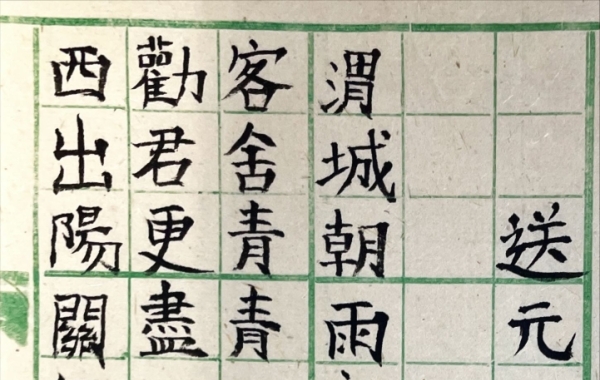 送元
渭城朝雨
客舍青青
勸君更盡
西出陽關